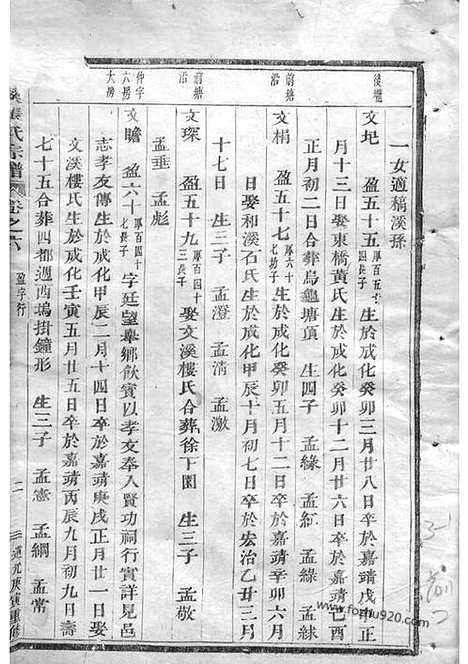 後壠
前塘沿
前塘沿
仲字六房大房
一女適稿溪孫
文圯 盈五十五厚百五十長子 生於成化癸卯三月廿八日卒於嘉靖戊申正
月十三日娶東橋黃氏生於成化癸卯十二月廿六日卒於嘉靖己酉
正月初二日合葬烏龜塘頂 生四子 孟緣 孟紅 孟綠 孟練
文楫 盈五十七厚六十七幼子 生於成化癸卯五月十二日卒於嘉靖辛卯六月
日娶和溪石氏生於成化甲辰十月初七日卒於宏治乙丑三月
十七日 生三子 孟澄 孟清 孟激
文琛 盈五十九厚百四十三長子 娶文溪樓氏合葬徐下園 生三子 孟敬
孟垂 孟彪
文瞻 盈六十厚百四十七長子 字廷望舉鄉飲賓以孝友奉入賢功祠行實詳見邑
志孝友傳生於成化甲辰二月十四日卒於嘉靖庚戌正月廿一日娶
文溪樓氏生於成化壬寅五月廿五日卒於嘉靖丙辰九月初九日壽
七十五合葬四都週西塢掛鐘形 生三子 孟憲 孟綱 孟常
氏宗譜 卷之六 盈字行 二 道光庚寅重修
www.foshu920.com